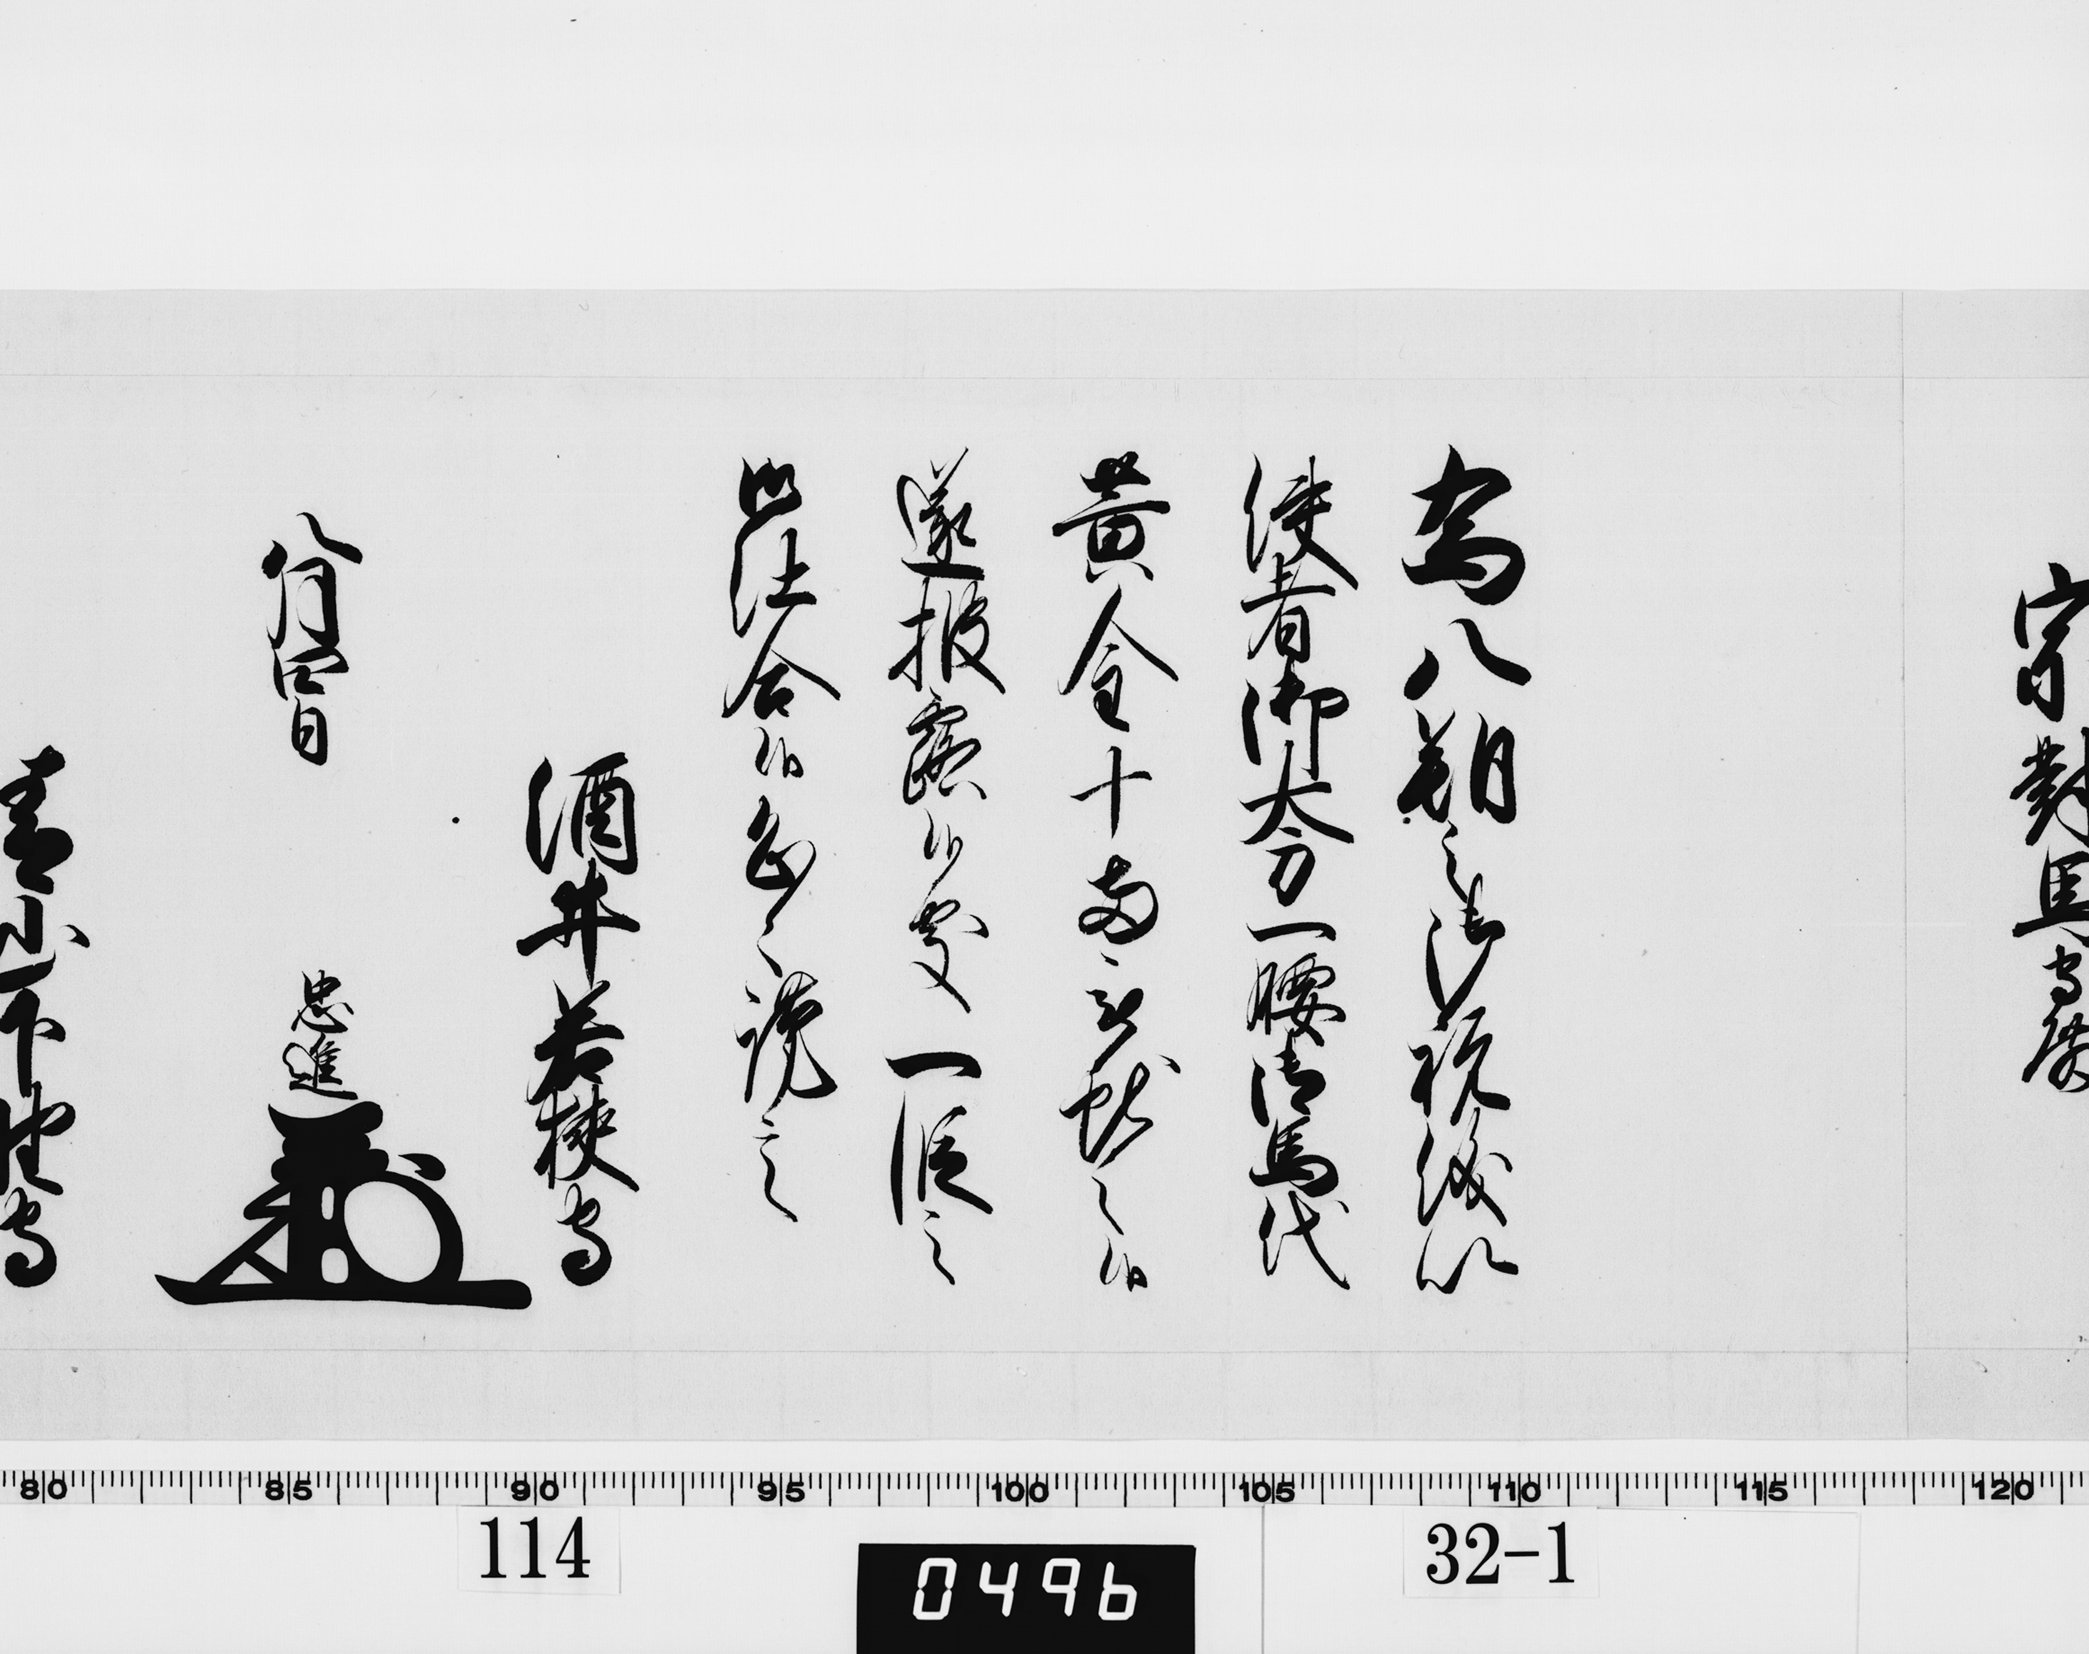 宗對馬守殿
為八朔之御祝儀以
使者御太刀一腰御馬代
黄金十両
遂披露候處一段之
御仕合候
酒井若狭守
八月四日
忠進
青山下野守
80 85 90 95 100 105 110 115 120
114
0496
32-1